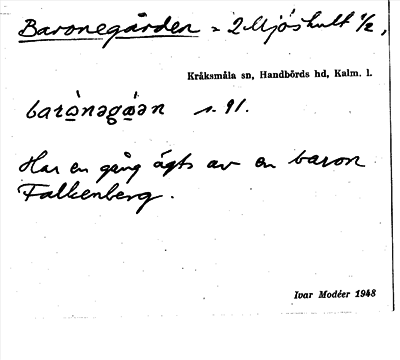 Baronegården = 2 Mjöshult 1/2,
Kråksmåla sn, Handbörds hd, Kalm. l.
s. 91.
Har en gång ägts av en baron
Falkenberg.
Ivar Modéer 1948